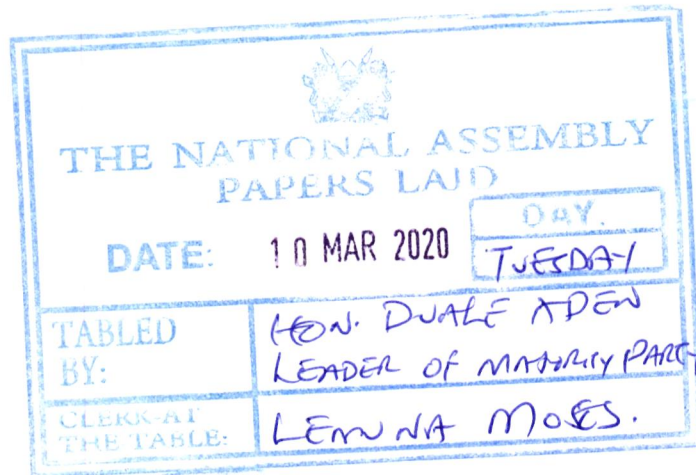 THE NATIONAL ASSEMBLY
PAPERS LAID
DATE: 10 MAR 2020
DAY.
TUESDAY
TABLED BY:
HON. DUALE ADEN
LEADER OF MAJORITY PARTY
CLERK-AT THE TABLE:
MOSES.